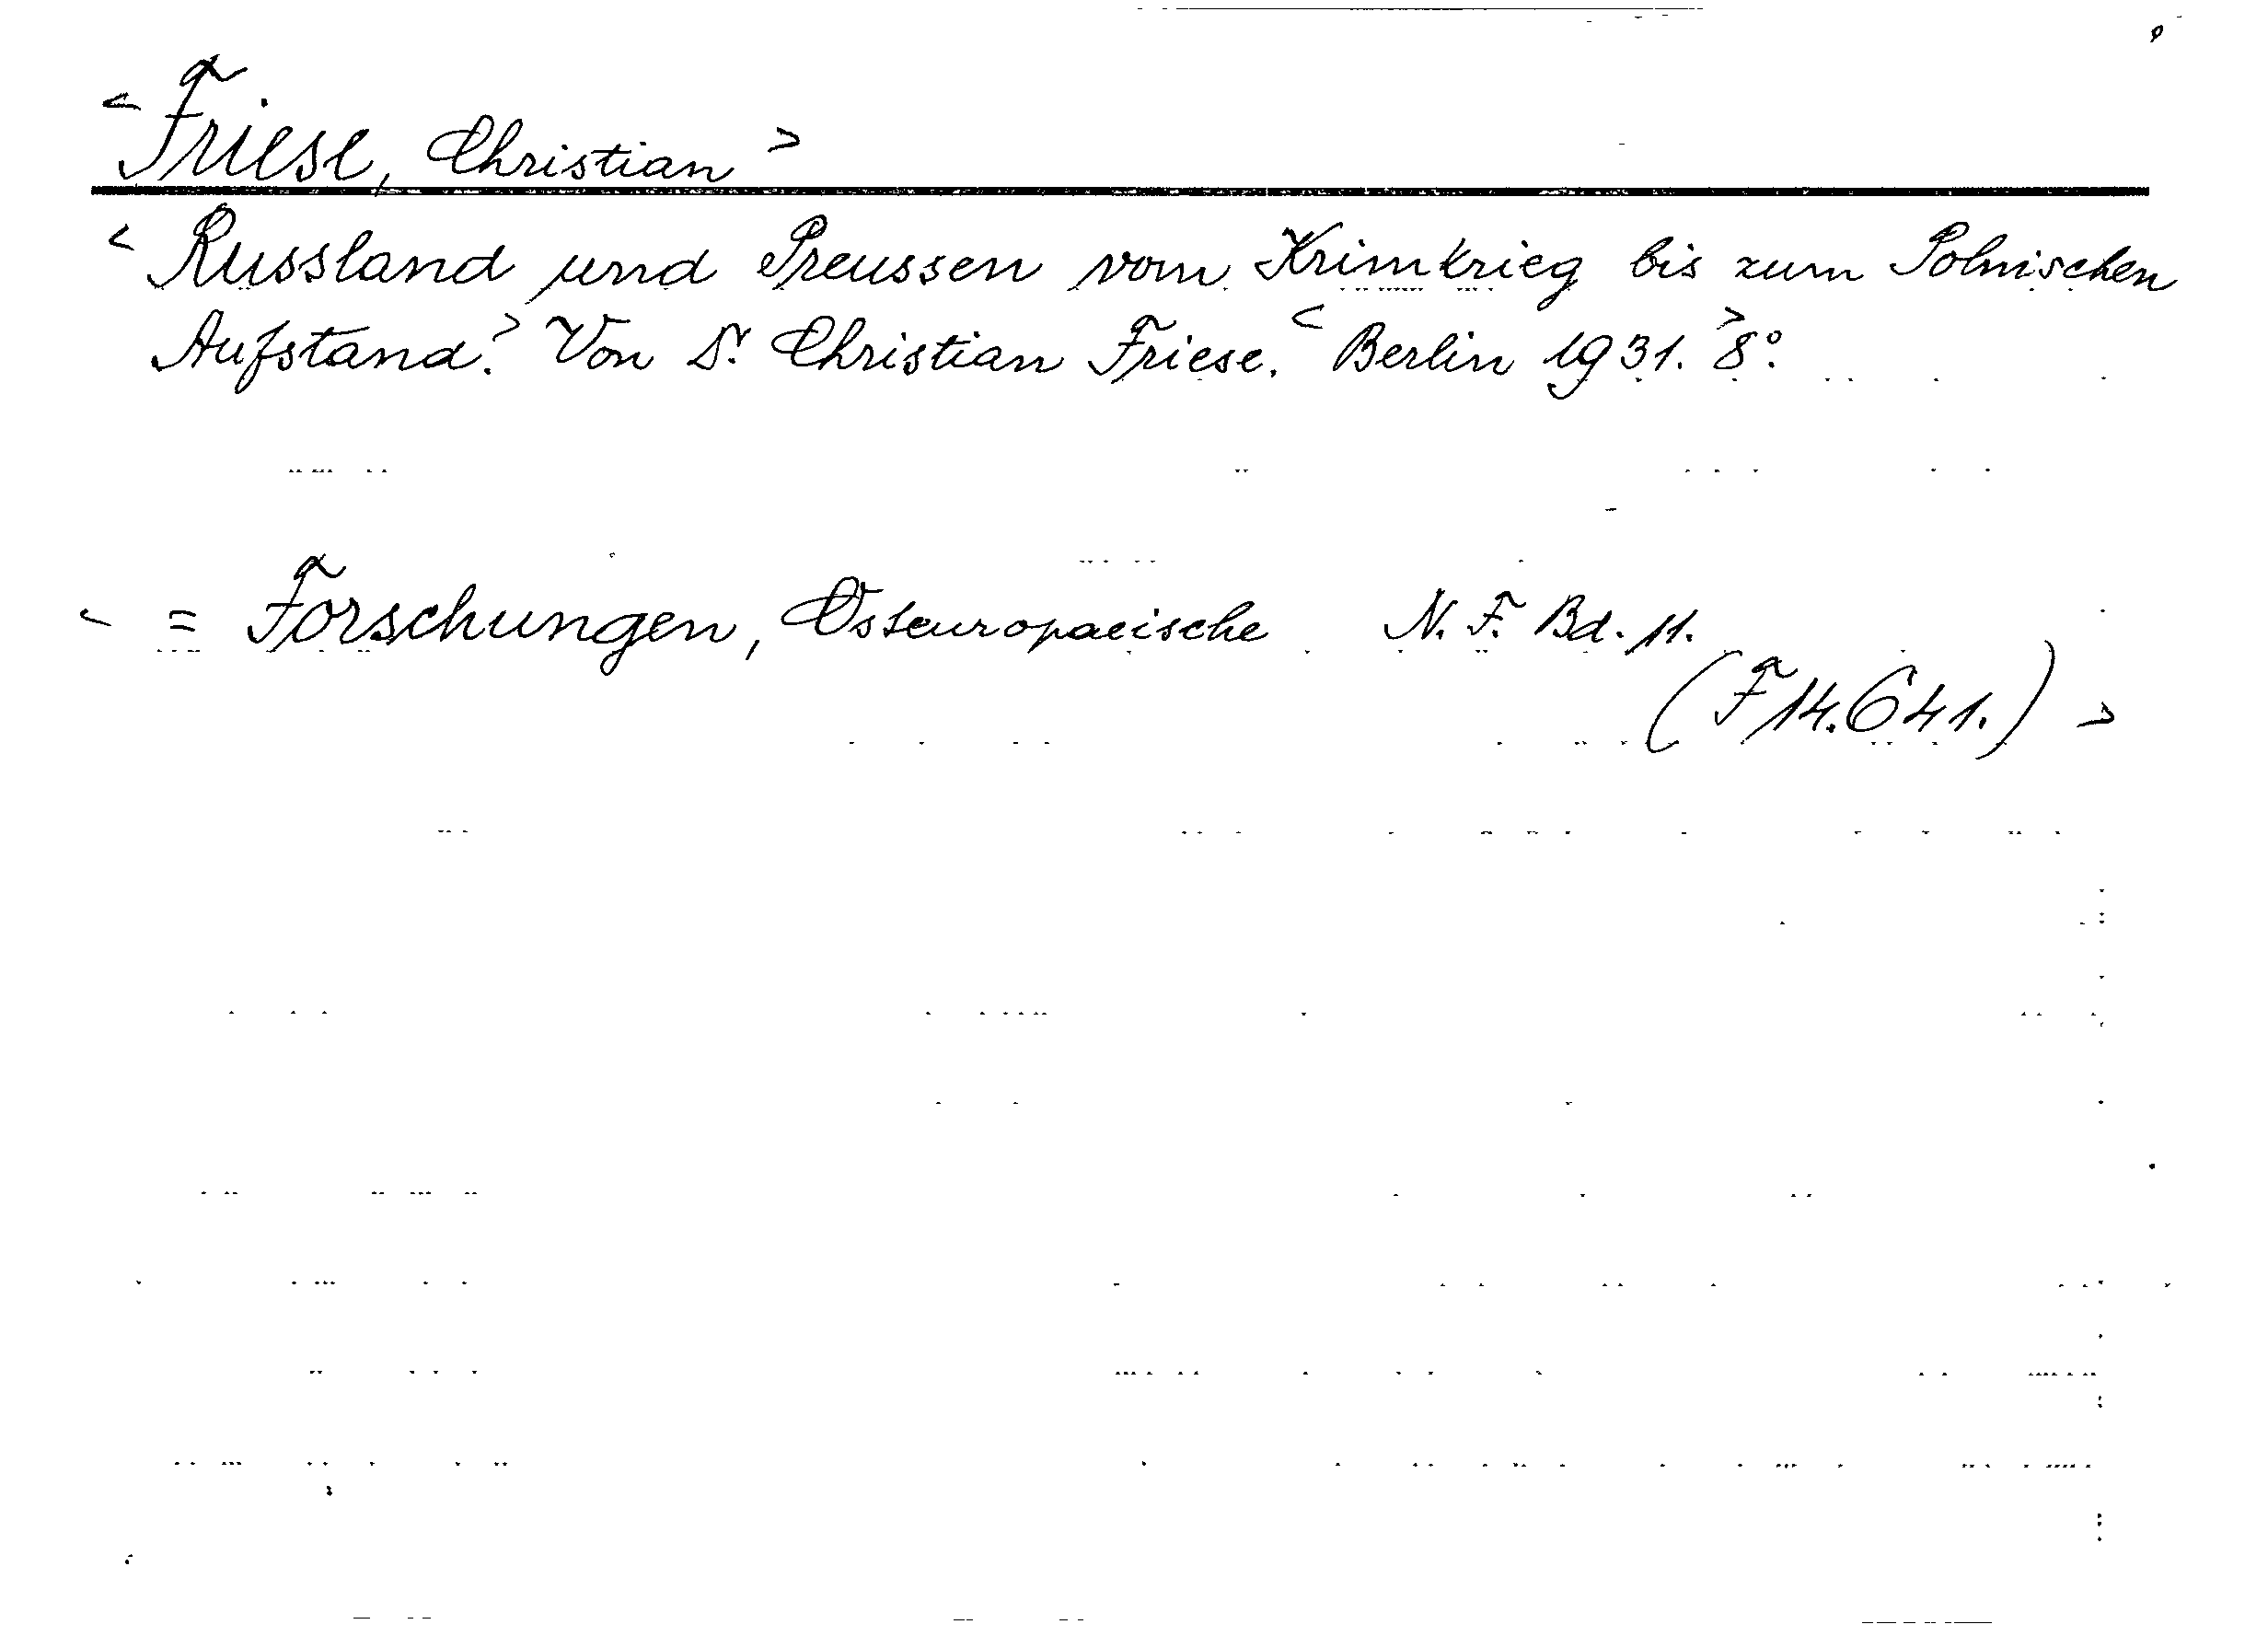 < Friese, Christian >
< Russland und Preussen vom Krimkrieg bis zum Polnischen
Aufstand. > Von Dr. Christian Friese. < Berlin 1931. > 8°.
< = Forschungen, Osteuropaeische N. F. Bd. 11.
(F 14.641.) >